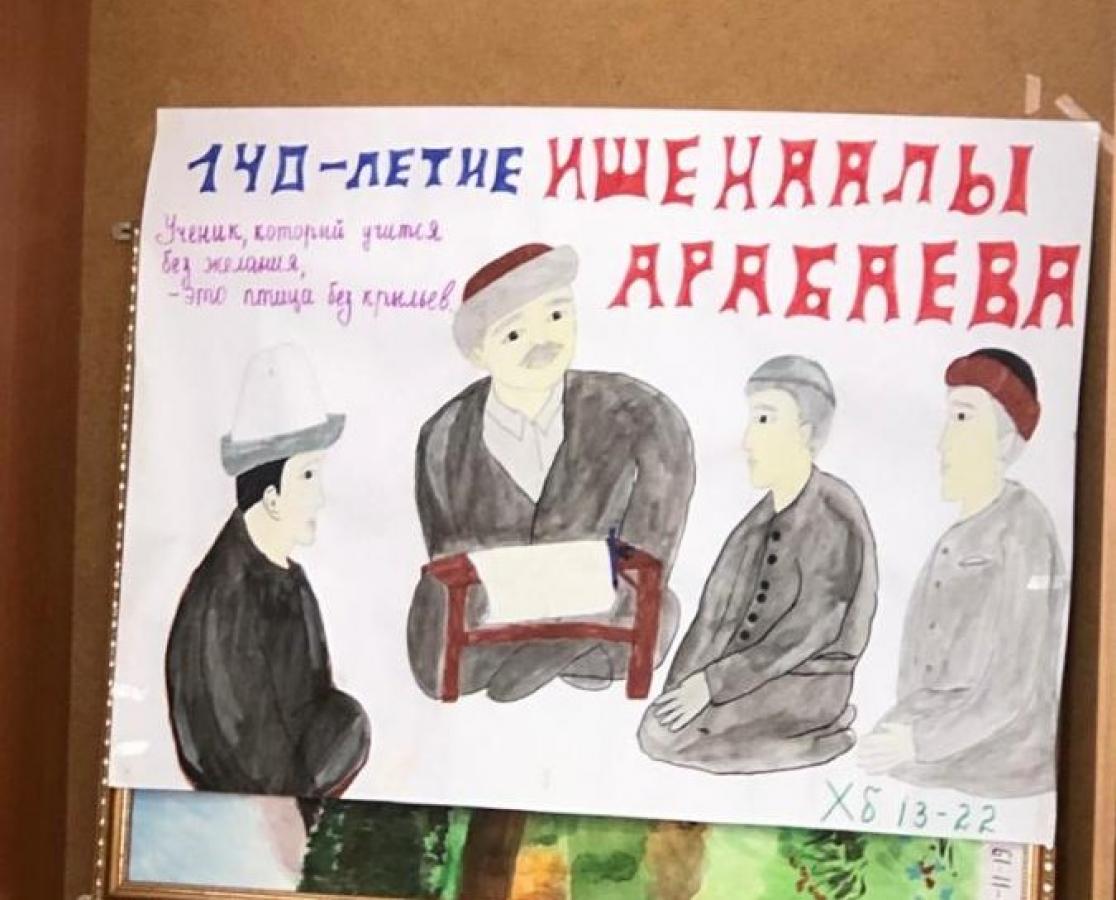 140-ЛЕТИЕ ИШЕНААЛЫ
АРАБАЕВА
Ученик, который учится
без желания,
-Это птица без крыльев.
Хб 13-22
19-11-